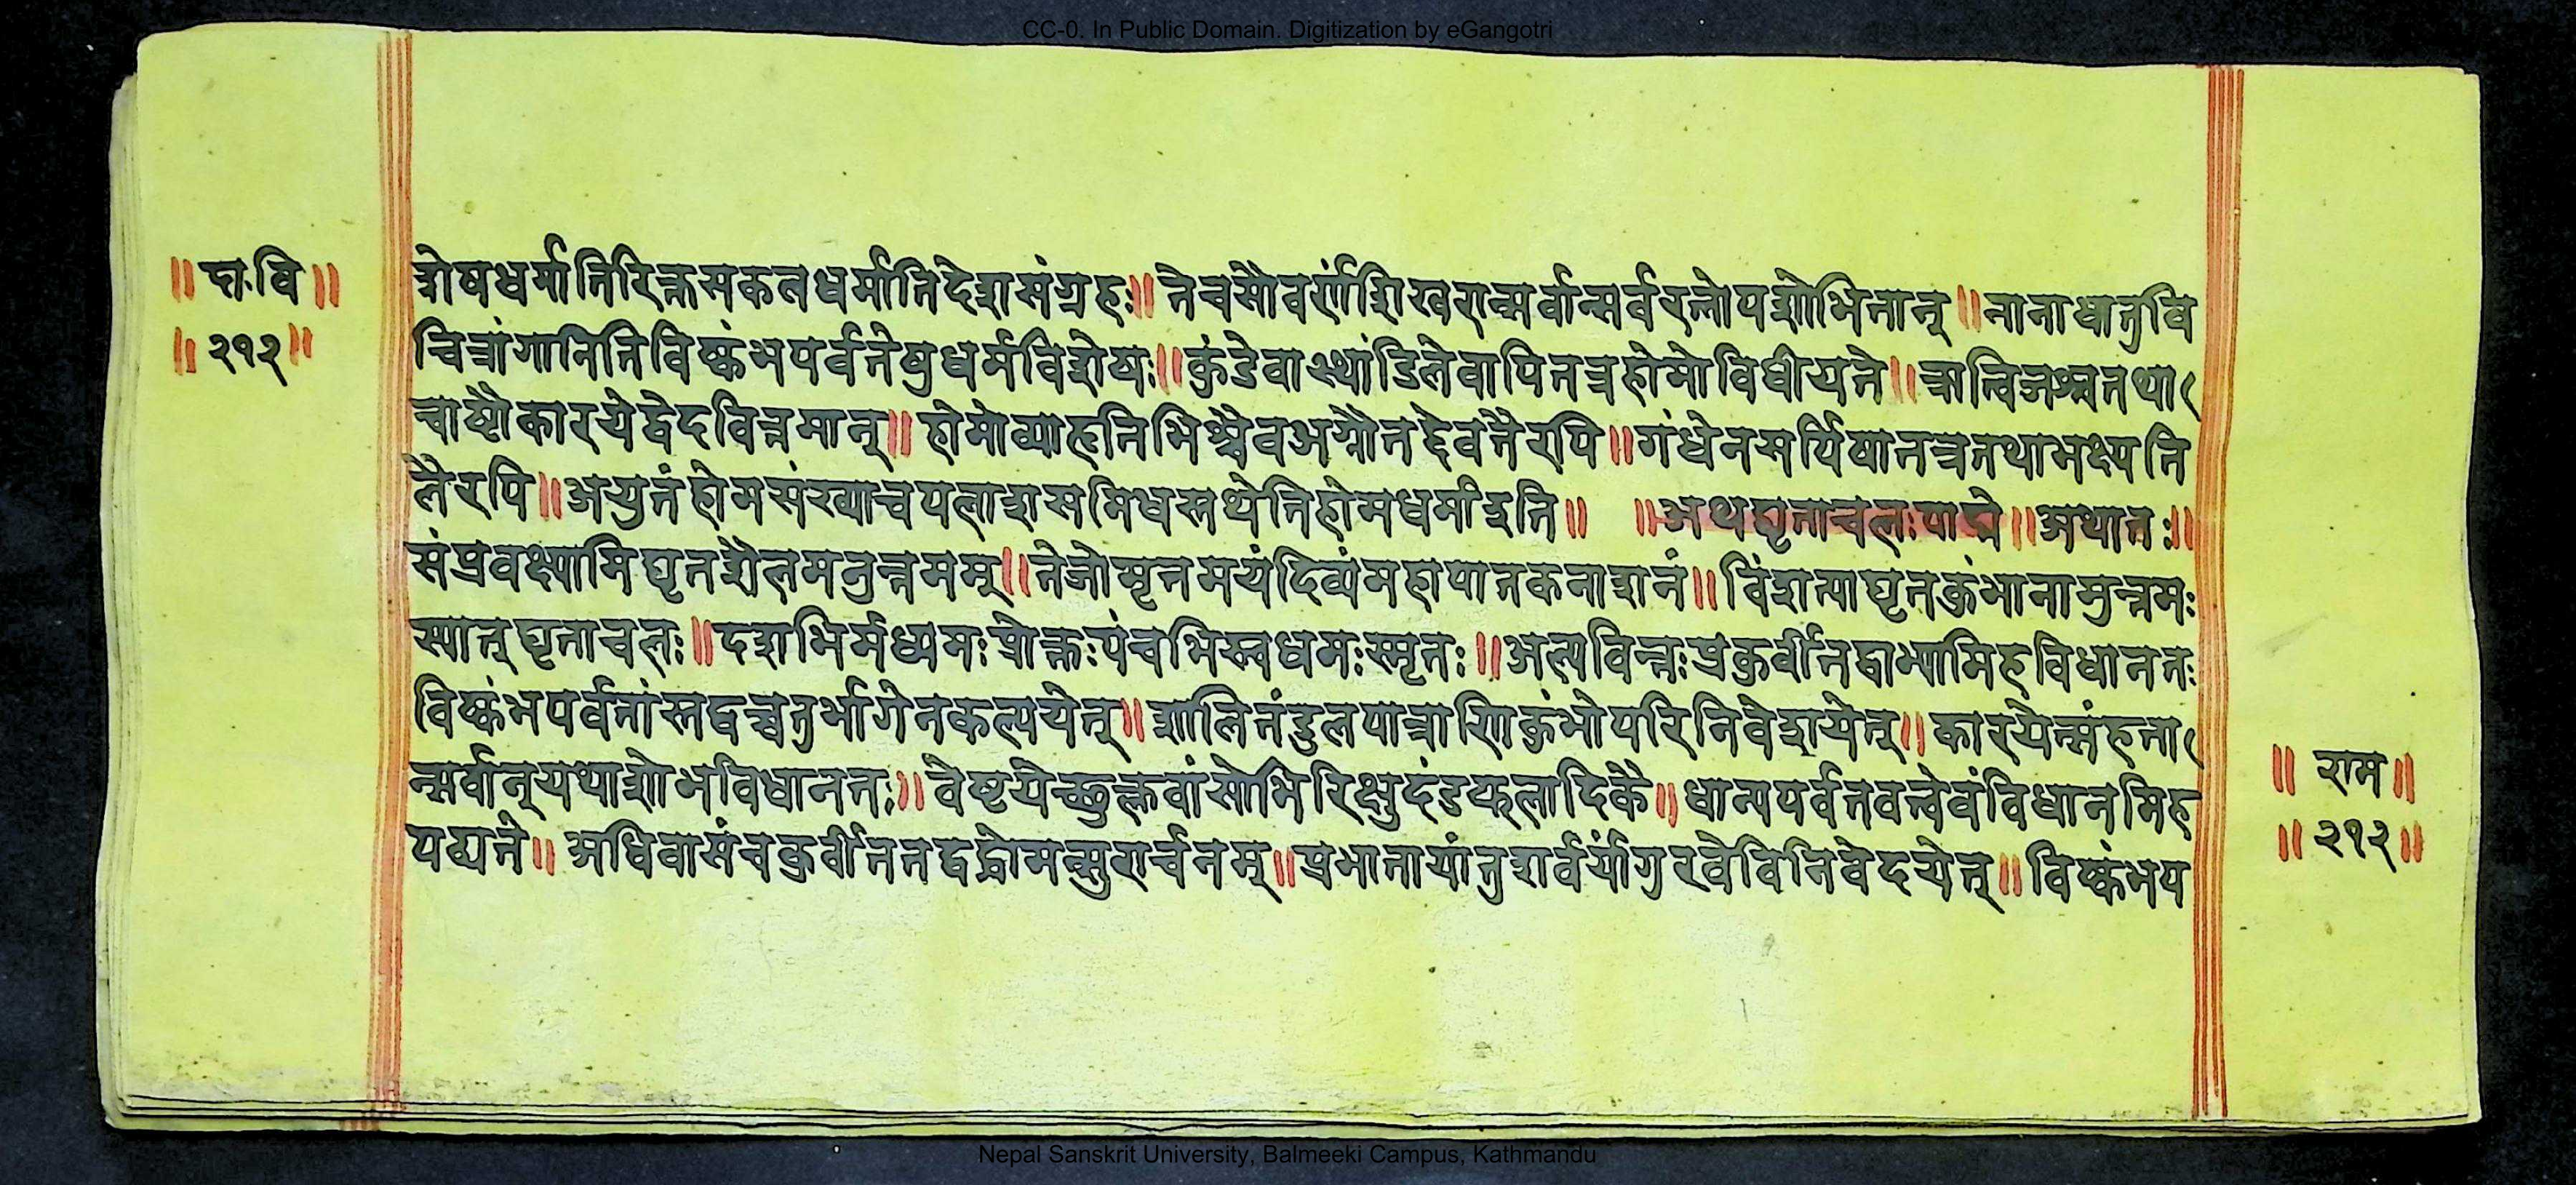 CC-0. In Public Domain. Digitization by eGangotri
॥ दा॰वि ॥
॥ २१२ ॥
शेषधर्मातिरिक्तसकलधर्मातिदेशसंग्रहः ॥ तेच सौवर्णशिखरान्सर्वान्सर्वरत्नोपशोभितान् ॥ नानाधातुवि
चित्रांगानिति विष्कंभपर्वतेषु धर्मविशेषः ॥ कुंडे वा स्थांडिले वापि तत्र होमो विधीयते ॥ ऋत्विजश्च तथा
चाष्टौ कारयेद्वेदवित्तमान् ॥ होमो व्याहृतिभिश्चैव अग्नौ तद्देवतैरपि ॥ गंधेन सर्पिषा तत्र तथा भक्ष्यति
लैरपि ॥ अयुतं होमसंख्या च पलाशसमिधस्तथेति होमधर्मा इति ॥ ॥ अथ घृताचलः पाद्मे ॥ अथातः ॥
संप्रवक्ष्यामि घृतशैलमनुत्तमम् ॥ तेजोमृतमयं दिव्यं महापातकनाशनं ॥ विंशत्या घृतकुंभानामुत्तमः
स्यात् घृताचलः ॥ दशभिर्मध्यमः प्रोक्तः पंचभिस्त्वधमः स्मृतः ॥ अल्पवित्तः प्रकुर्वीत द्वाभ्यामिह विधानतः
विष्कंभपर्वतांस्तद्वच्चतुर्भागेन कल्पयेत् ॥ शालितंडुलपात्राणि कुंभोपरि निवेशयेत् ॥ कारयेत्संहता
न्सर्वान् यथाशोभविधानतः ॥ वेष्टयेच्छुक्लवांसोभिरिक्षुदंडफलादिकै ॥ धान्यपर्वतवत्त्वेवं विधानमिह
पठ्यते ॥ अधिवासं च कुर्वीत तद्वद्धोमत्सुरार्चनम् ॥ प्रभातायां तु शर्वर्यां गुरवे विनिवेदयेत् ॥ विष्कंभप
॥ राम ॥
॥ २१२ ॥
Nepal Sanskrit University, Balmeeki Campus, Kathmandu